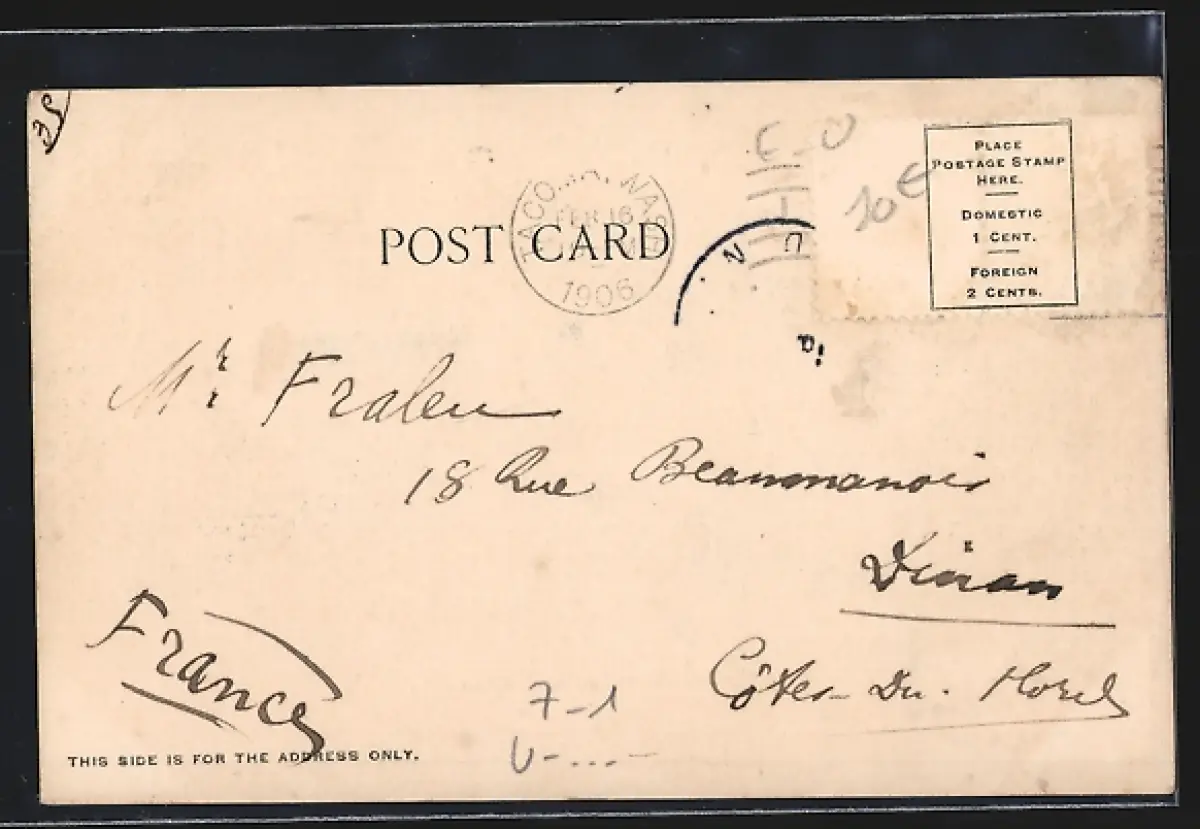 PLACE
POSTAGE STAMP
HERE.
DOMESTIC
1 CENT.
FOREIGN
2 CENTS.
10€
TACOMA, WASH
FEB 16
1906
POST CARD
Mr. Fralen
18 Rue Beaumanoir
Dinan
Côtes-Du-Nord
France
7-1
THIS SIDE IS FOR THE ADDRESS ONLY.